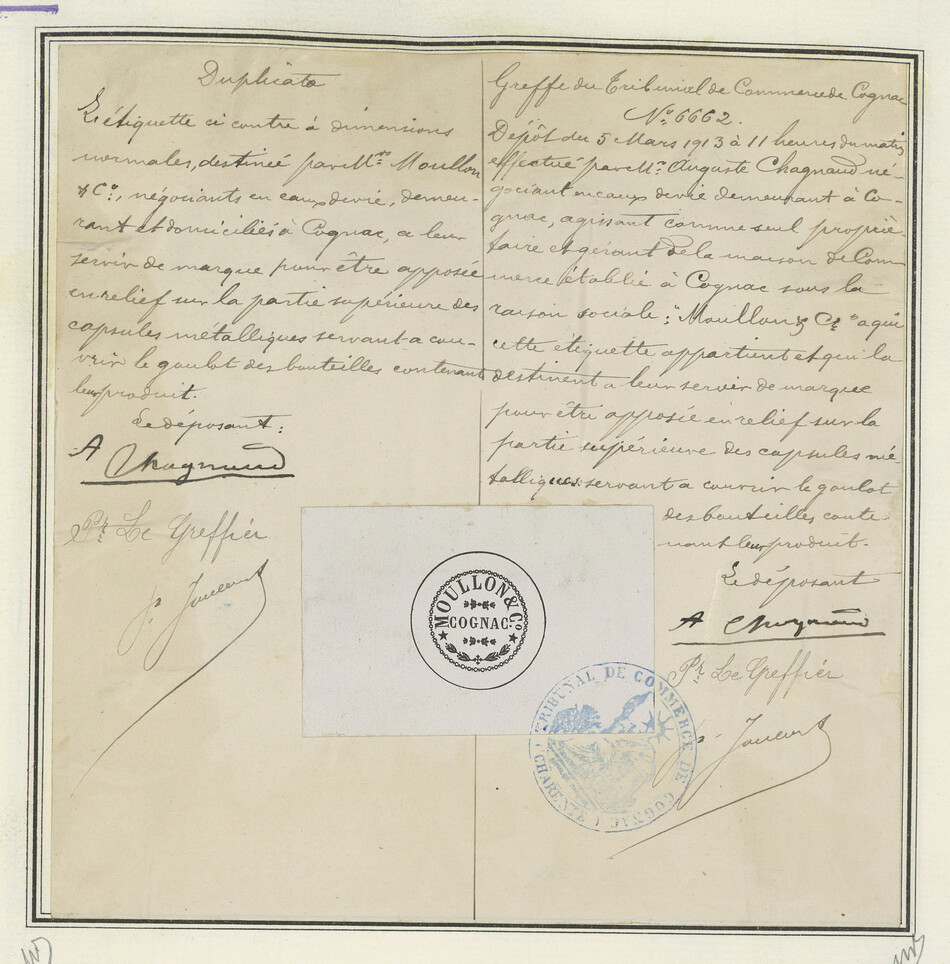 Duplicata
L'étiquette ci contre à dimensions
normales, destinée par Mrs Moullon
& Co, négociants en eaux de vie, demeu-
rant et domiciliés à Cognac, a leur
servir de marque pour être apposée
en relief sur la partie supérieure des
capsules métalliques servant a cou-
vrir le goulot des bouteilles contenant
leur produit.
Le déposant:
A Chagnaud
Pr Le Greffier
Greffe du Tribunal de Commerce de Cognac
No 6662.
Dépôt du 5 Mars 1913 à 11 heures du matin
effectué par Mr Auguste Chagnaud né-
gociant en eaux de vie demeurant à Co-
gnac, agissant comme seul proprié
taire et gérant de la maison de Com
merce établie à Cognac sous la
raison sociale: "Moullon & Cie" a qui
cette étiquette appartient et qui la
destinent a leur servir de marque
pour être apposée en relief sur la
partie supérieure des capsules mé-
talliques servant a couvrir le goulot
des bouteilles conte
nant leur produit.
Le déposant
A Chagnaud
Pr Le Greffier
MOULLON & Co
COGNAC
TRIBUNAL DE COMMERCE DE COGNAC (CHARENTE)